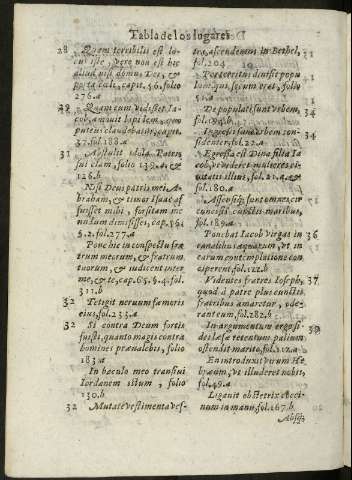 Tabla de los lugares
28 Quam terribilis est lo-
cus iste, vere non est hic
aliud nisi domus Dei, &
porta cæli, capit. 56. folio
276.a
29 Quam cum vidisset Ia-
cob, amouit lapidem, quo
puteus claudebatur, capit.
37. fol. 188.a
31 Abstulit idola Patris
sui clam, folio 139.a, &
126.b
Nisi Deus patris mei A-
braham, & timor Isaac af
fuisset mihi, forsitam me
nudum dimisisses, cap. 56.
5.2. fol. 277.a
Pone hic in conspectu fra
trum meorum, & fratrum
tuorum, & iudicent inter
me, & te, cap. 65. §.4. fol.
311.b
32 Tetegit neruum fæmoris
eius, fol. 233.a
32 Si contra Deum fortis
fuisti, quanto magis contra
homines præualebis, folio
183.a
In baculo meo transiui
Iordanem istum, folio
130.b
32 Mutate vestimenta ves-
tra, ascendemus in Bethel,
fol. 204
Perterritus diuisit popu
lum qui secum erat, folio
De populate sunt vrbem,
fol. 194.b
Ingressi sunt vrbem con-
fidenter, fol. 22.a
Egressa est Dina filia Ia
cob, vt videret mulieres ci-
uitatis illius, fol. 21.a, &
fol. 180.a
Assensique sunt omnes, cir
cuncisis cunctis maribus,
fol. 189.a
36 Ponebas Iacob virgas in
canalibus aquarum, vt in
earum contemplatione con
ciperent, fol. 12.b
37 Videntes fratres Ioseph,
quod à patre plus cunctis
fratribus amaretur, ode-
rant eum, fol. 282.b
39 In argumentum ergo fi-
dei læsæ retentum pallium
ostendit marito, fol. 212.a
En introduxit virum He
bræum, vt illuderet nobis,
fol. 49.a
Ligauit obstetrix cocci-
num in manu, fol. 167.b